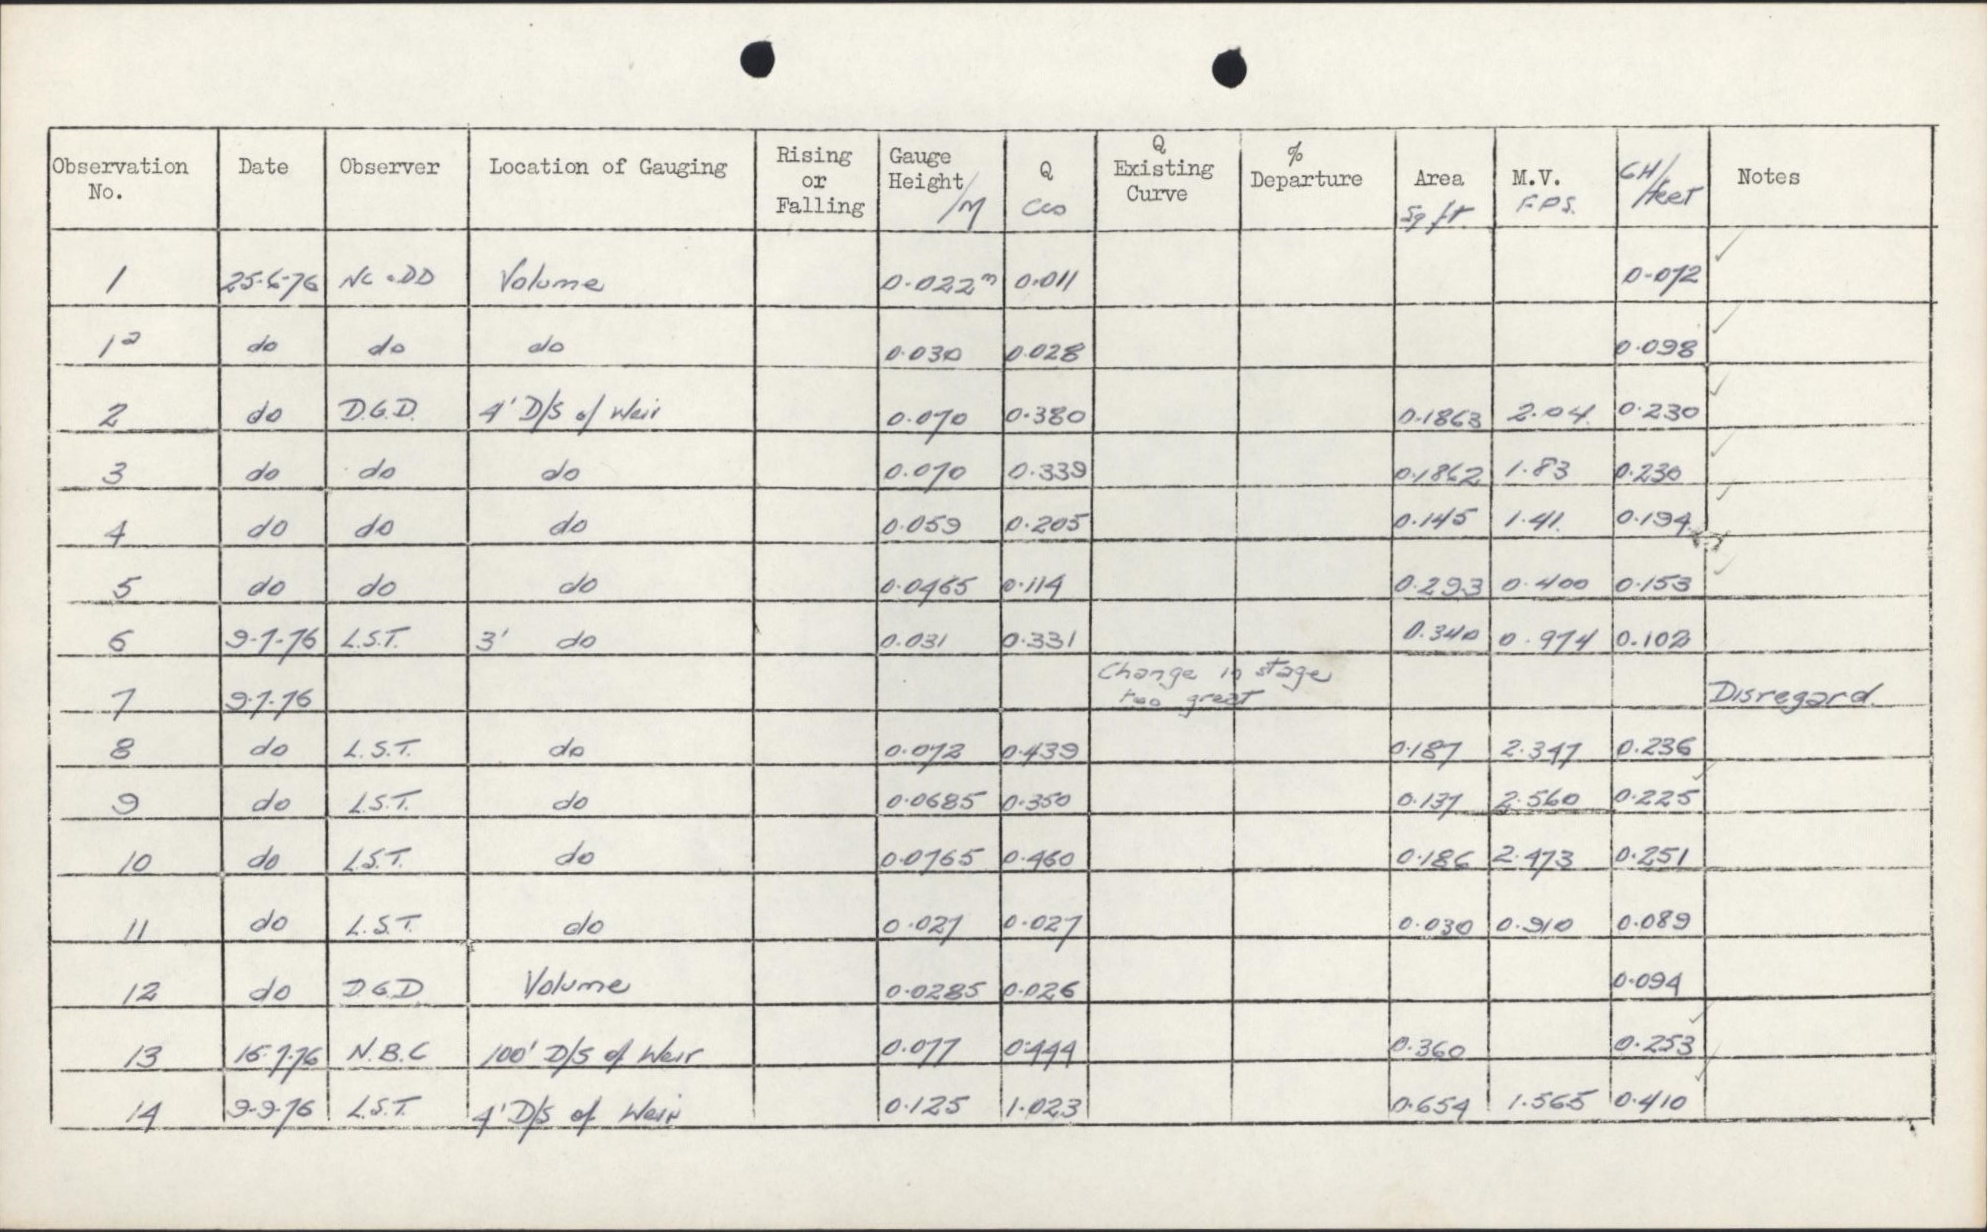 Observation No. Date Observer Location of Gauging Rising or Falling Gauge Height/M Q Q Existing Curve % Departure Area Sq ft. M.V. F.P.S. GH/feet Notes
1 25-6-76 Volume 0.022m 0.011 0.072 ✓
1a do do do 0.030 0.028 0.098 ✓
2 do D.G.D. 4' D/S of Weir 0.070 0.380 0.1863 2.04 0.230 ✓
3 do do do 0.070 0.339 0.1862 1.83 0.230 ✓
4 do do do 0.059 0.205 0.145 1.41 0.194 ✓
5 do do do 0.0465 0.114 0.293 0.400 0.153 ✓
6 9-7-76 L.S.T. 3' do 0.031 0.331 0.340 0.974 0.102
7 9-7-76 Change in stage too great Disregard.
8 do L.S.T. do 0.072 0.439 0.187 2.347 0.236
9 do L.S.T. do 0.0685 0.350 0.137 2.560 0.225 ✓
10 do L.S.T. do 0.0765 0.460 0.186 2.473 0.251
11 do L.S.T. do 0.027 0.027 0.030 0.910 0.089
12 do DGD Volume 0.0285 0.026 0.094
13 15-7-76 N.B.C 100' D/S of Weir 0.077 0.444 0.360 0.253 ✓
14 9-9-76 L.S.T. 4' D/S of Weir 0.125 1.023 0.654 1.565 0.410 ✓